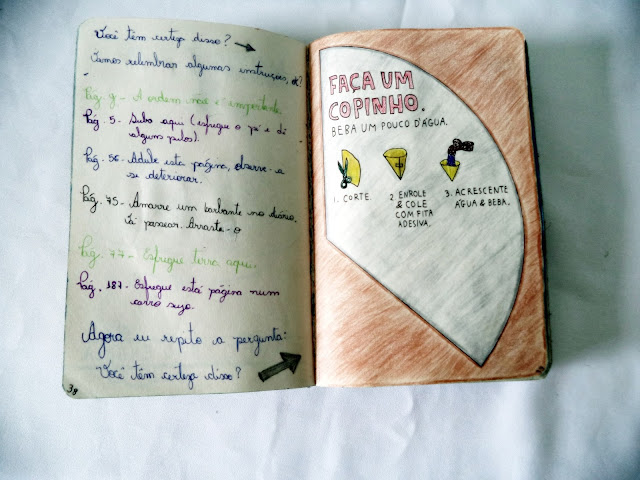 Você têm certeza disso?
Vamos relembrar algumas instruções, ok?
Pág. 9 - A ordem não é importante.
Pág. 5 - Suba aqui (esfregue o pé e dê
alguns pulos).
Pág. 56 - Adule esta página, observe-a
se deteriorar.
Pág. 75 - Amarre um barbante no diário,
vá passear. Arraste-o
Pág. 77 - Esfregue terra aqui.
Pág. 187 - Esfregue está página num
carro sujo.
Agora eu repito a pergunta:
Você têm certeza disso?
38
FAÇA UM
COPINHO.
BEBA UM POUCO D'ÁGUA.
1. CORTE.
2. ENROLE
& COLE
COM FITA
ADESIVA.
3. ACRESCENTE
ÁGUA & BEBA.